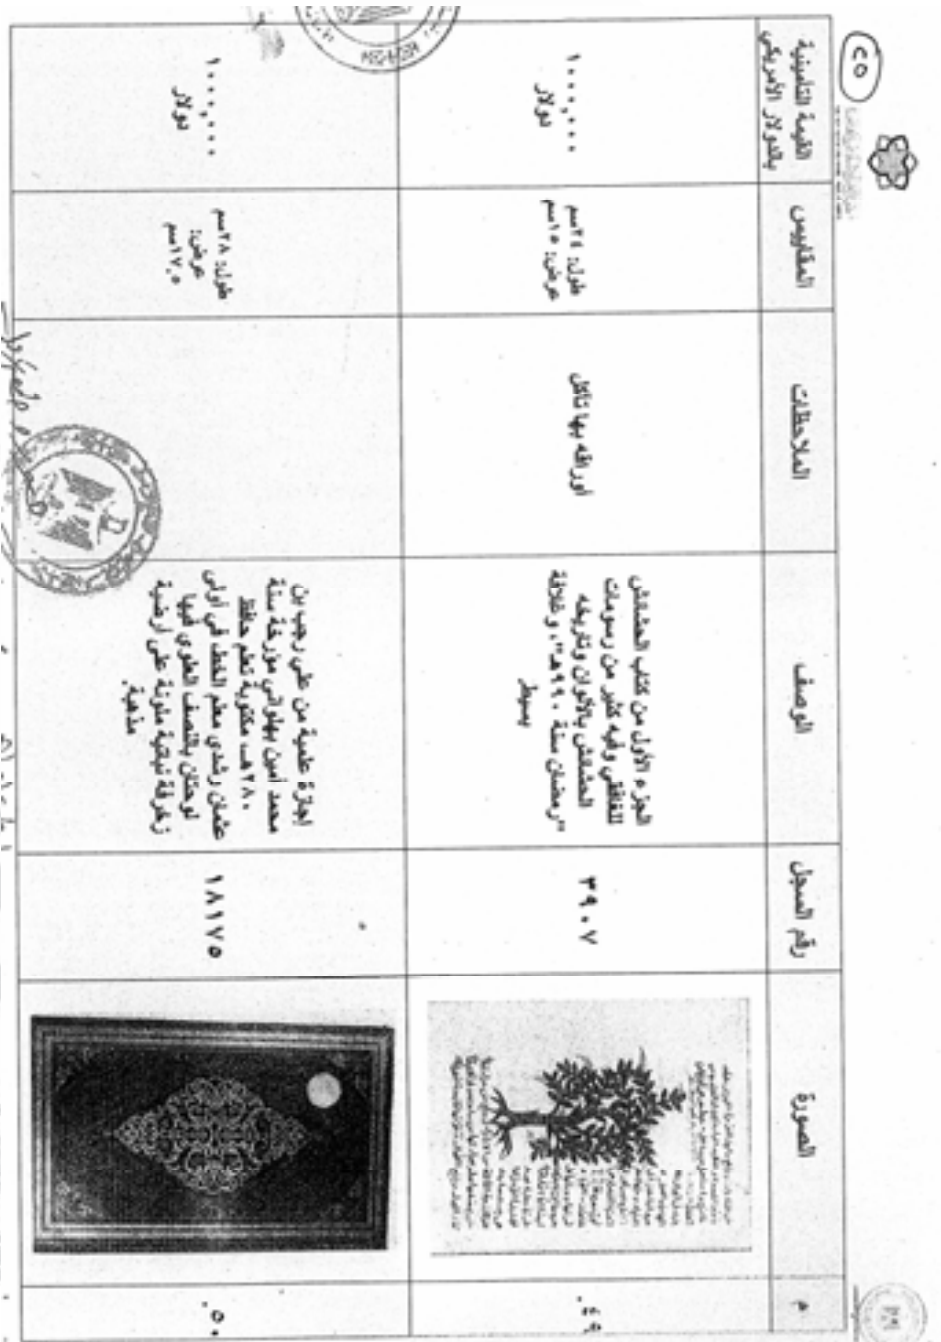 م
الصورة
رقم السجل
الوصف
الملاحظات
المقاييس
القيمة التأمينية
بالدولار الأمريكي
٤٩.
٣٩٠٧
الجزء الأول من كتاب الحشائش
للغافقي وفيه كثير من رسومات
الحشائش بالألوان وتاريخه
"رمضان سنة ٩٩٠هـ"، وغلافة
بسيط
أوراقه بها تآكل
طول: ٢٤سم
عرض: ١٥سم
١٠٠٠,٠٠٠
دولار
٥٠.
١٨١٧٥
إجازة علمية من علي رجب بن
محمد أمين بهلواني مؤرخة سنة
٢٨٠هـ مكتوبة تعلم حافظ
عثمان رشدي معلم الخط في أولى
لوحتان بالنصف العلوي فيها
زخرفة نباتية ملونة على أرضية
مذهبة.
طول: ٢٨سم
عرض:
١٧,٥سم
١٠٠٠,٠٠٠
دولار